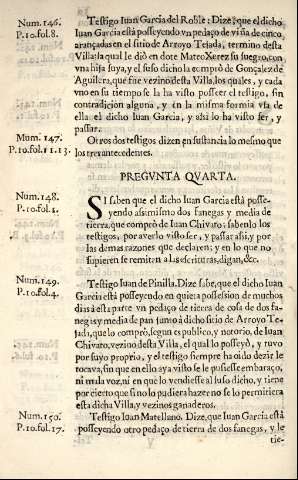 Num. 146.
P.10.fol.8.
Testigo Iuan Garcia del Roble: Dize, que el dicho
Iuan Garcia està posseyendo vn pedaço de viña de cinco
arançadas en el sitio de Arroyo Tejada, termino desta
Villa: la qual le diò en dote Mateo Xerez su suegro, con
vna hija suya, y el suso dicho la comprò de Gonçalez de
Aguilera, que fue vezino desta Villa, los quales, y cada
vno en su tiempo se la ha visto posseer el testigo, sin
contradicion alguna, y en la misma forma vsa de
ella el dicho Iuan Garcia, y assi lo ha visto ser, y
passar.
Num. 147.
P.10.fol.11.13.
Otros dos testigos dizen en sustancia lo mesmo que
los tres antecedentes.
PREGVNTA QVARTA.
Num. 148.
P.10.fol.1.
SI saben que el dicho Iuan Garcia està posse-
yendo assimismo dos fanegas y media de
tierra, que comprò de Iuan Chivato: sabenlo los
testigos, por averlo visto ser, y passar assi, y por
las demas razones que declaren; y en lo que no
supieren se remiten a las escrituras, digan, &c.
Num. 149.
P.10.fol.4.
Testigo Iuan de Pinilla. Dize sabe, que el dicho Iuan
Garcia està posseyendo en quieta possession de muchos
dias à esta parte vn pedaço de tierra de cosa de dos fane-
gas y media de pan junto à dicho sitio de Arroyo Te-
jada, que lo comprò, segun es publico, y notorio, de Iuan
Chivato, vezino desta Villa, el qual lo posseyò, y tuvo
por suyo proprio, y el testigo siempre ha oido dezir le
tocava, sin que en ello aya visto se le pusiesse embaraço,
ni mala voz, ni en que lo vendiesse al suso dicho, y tiene
por cierto que si no lo pudiera hazer no se lo permitiera
esta dicha Villa, y vezinos ganaderos.
Num. 150.
P.10.fol.17.
Testigo Iuan Matellano. Dize, que Iuan Garcia està
posseyendo otro pedaço de tierra de dos fanegas, y le
tie-